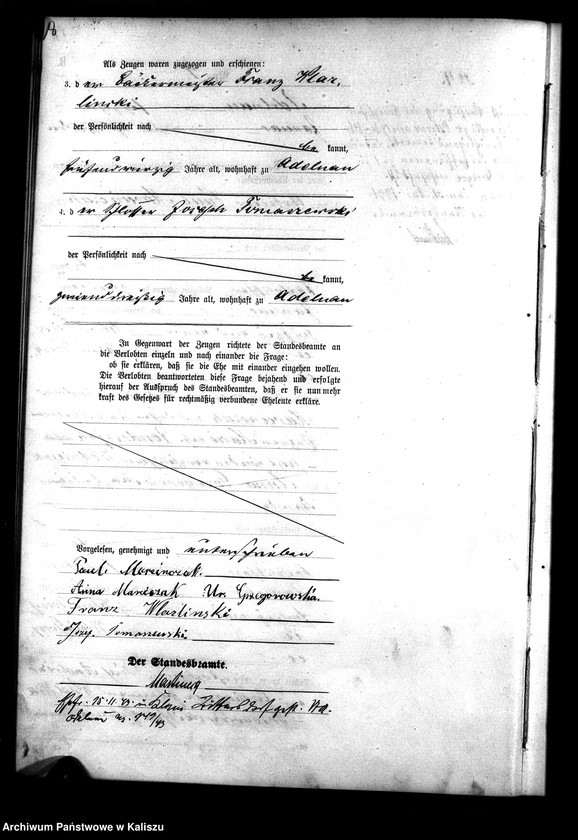 Als Zeugen waren zugezogen und erschienen:
3. der Bäckermeister Franz Wlaz,
linski
der Persönlichkeit nach
be kannt,
fünfundvierzig Jahre alt, wohnhaft zu Adelnau
4. der Schlosser Joseph Tomaszewski
der Persönlichkeit nach
be kannt,
zweiunddreißig Jahre alt, wohnhaft zu Adelnau
In Gegenwart der Zeugen richtete der Standesbeamte an
die Verlobten einzeln und nach einander die Frage:
ob sie erklären, daß sie die Ehe mit einander eingehen wollen.
Die Verlobten beantworteten diese Frage bejahend und erfolgte
hierauf der Ausspruch des Standesbeamten, daß er sie nunmehr
kraft des Gesetzes für rechtmäßig verbundene Eheleute erkläre.
Vorgelesen, genehmigt und unterschrieben
Paul Marcinczak.
Anna Marciczak Ur. Grzegorowska.
Franz Wlazlinski
Jozef Tomaszewski
Der Standesbeamte.
15.11.43 in
Adelnau
Archiwum Państwowe w Kaliszu